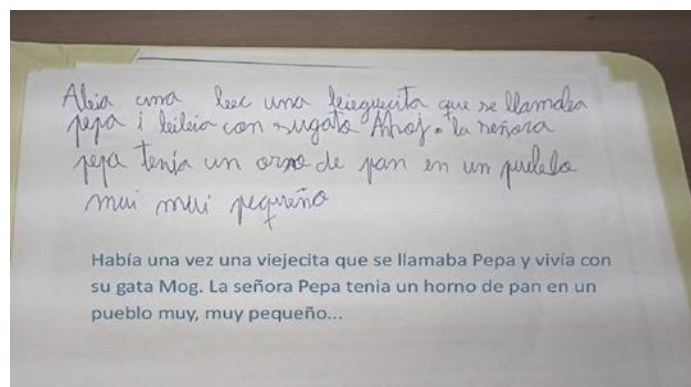 Abia una beec una beieguecita que se llamaba
pepa i beibeia con sugata Mhoj. la señora
pepa tenia un orno de pan en un puebelo
mui mui pequeño
Había una vez una viejecita que se llamaba Pepa y vivía con
su gata Mog. La señora Pepa tenia un horno de pan en un
pueblo muy, muy pequeño...